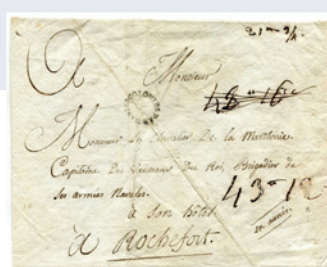 21 -
A
Monsieur
48 - 16
Monsieur le Chevalier De la
Capitaine Des Vaisseaux Du Roi, Brigadier de
ses armées Navales.
43 - 12
à son hôtel
à Rochefort.